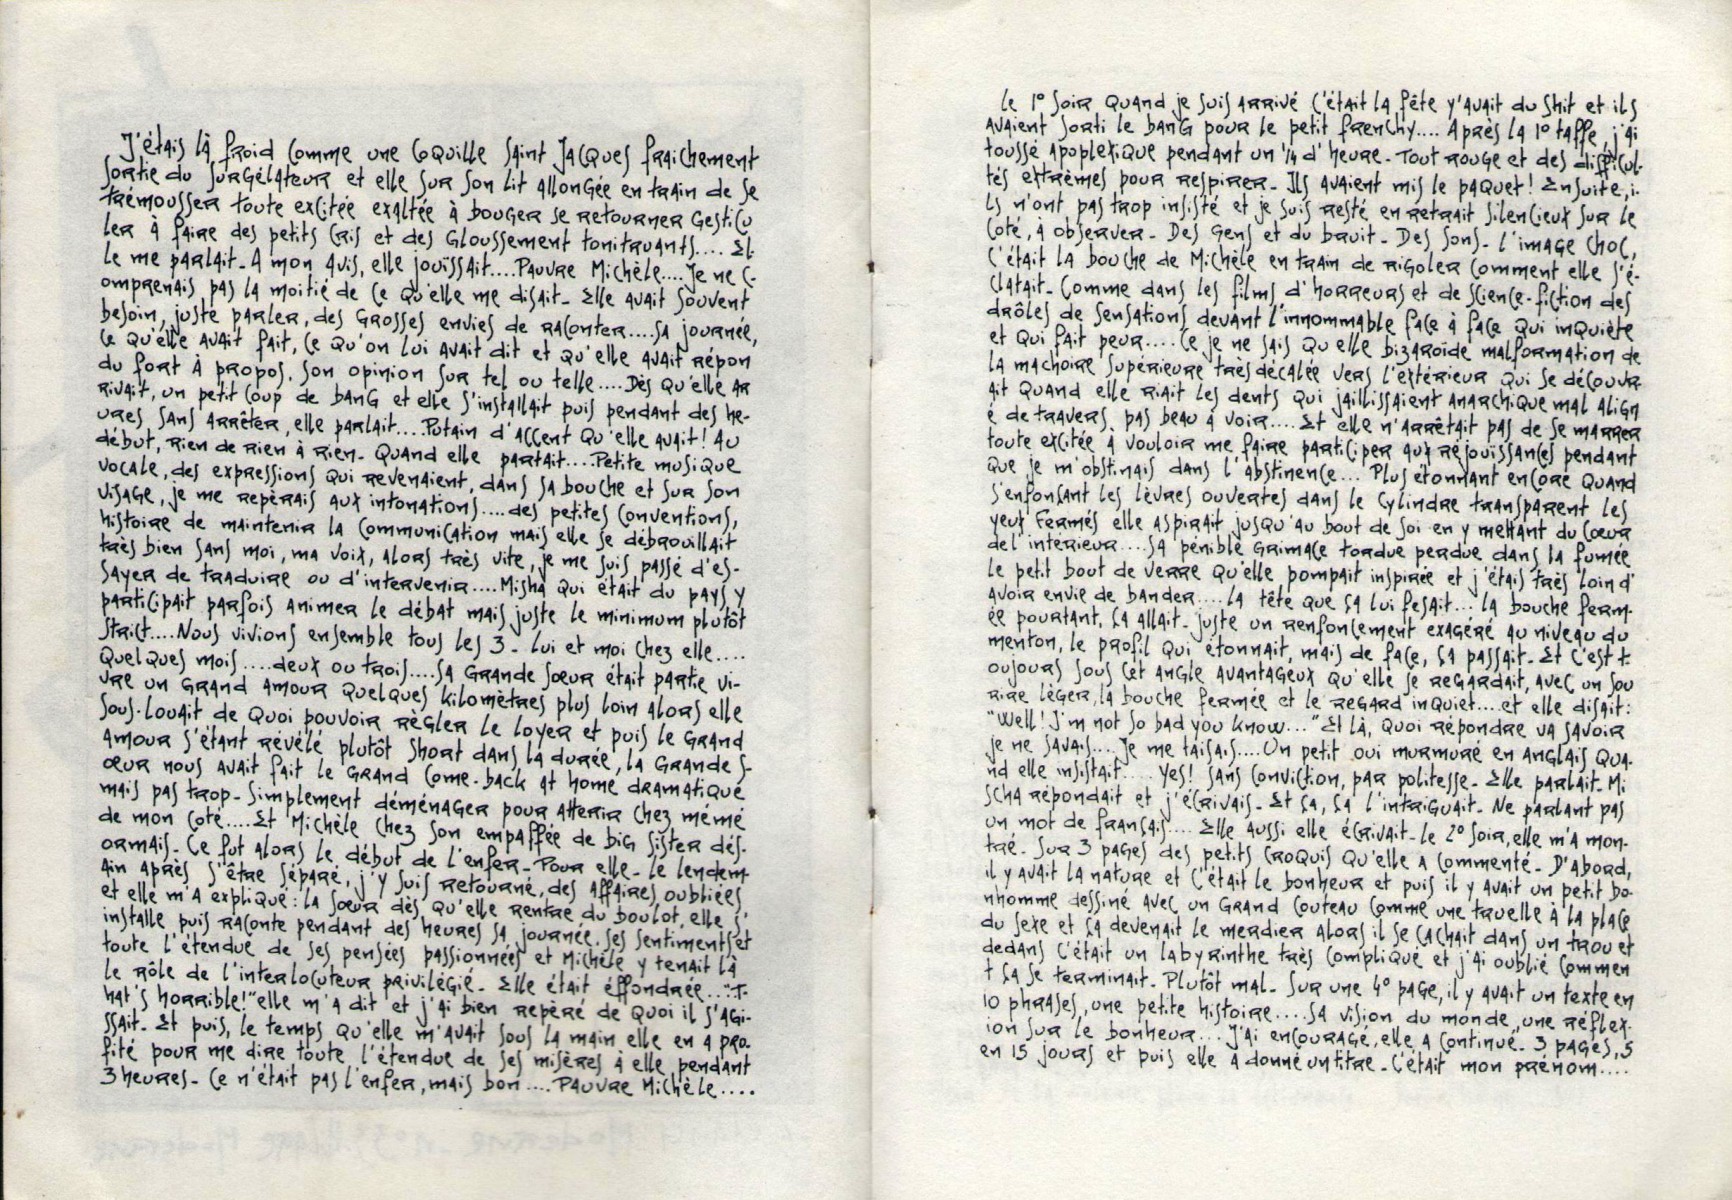 J'étais là froid comme une coquille Saint Jacques fraichement
sortie du surgélateur et elle sur son lit allongée en train de se
trémousser toute excitée exaltée à bouger se retourner gesticu
ler à faire des petits cris et des gloussement tonitruants.... El
le me parlait_ A mon avis, elle jouissait....Pauvre Michèle....Je ne c-
omprenais pas la moitié de ce qu'elle me disait_ Elle avait souvent
besoin, juste parler, des grosses envies de raconter....sa journée,
ce qu'elle avait fait, ce qu'on lui avait dit et qu'elle avait répon
du fort à propos. Son opinion sur tel ou telle....Dès qu'elle ar
rivait, un petit coup de bang et elle s'installait puis pendant des he-
ures sans arrêter, elle parlait....Putain d'accent qu'elle avait! Au
début, rien de rien à rien_ Quand elle partait....Petite musique
vocale, des expressions qui revenaient, dans sa bouche et sur son
visage, je me repérais aux intonations....des petites conventions,
histoire de maintenir la communication mais elle se débrouillait
très bien sans moi, ma voix, alors très vite, je me suis passé d'es-
sayer de traduire ou d'intervenir....Misha qui était du pays y
participait parfois animer le débat mais juste le minimum plutôt
strict....Nous vivions ensemble tous les 3_ Lui et moi chez elle....
Quelques mois....deux ou trois....Sa grande sœur était partie vi-
vre un grand amour quelques kilomètres plus loin alors elle
sous-louait de quoi pouvoir règler le loyer et puis le grand
amour s'étant révélé plutôt short dans la durée, la grande s-
œur nous avait fait le grand come-back at home dramatique
mais pas trop_ Simplement déménager pour atterir chez mémé
de mon coté....Et Michèle chez son empaffée de big sister dés-
ormais_ Ce fut alors le début de l'enfer_ Pour elle_ Le lendem-
ain après s'être séparé, j'y suis retourné, des affaires oubliées
et elle m'a expliqué: la sœur dès qu'elle rentre du boulot, elle s'
installe puis raconte pendant des heures sa journée. Ses sentiments et
toute l'étendue de ses pensées passionnées et Michèle y tenait là
le rôle de l'interlocuteur privilégié_ Elle était éffondrée...."T-
hat's horrible!" elle m'a dit et j'ai bien repèré de quoi il s'agi-
ssait_ Et puis, le temps qu'elle m'avait sous la main elle en a pro-
fité pour me dire toute l'étendue de ses misères à elle pendant
3 heures_ Ce n'était pas l'enfer, mais bon....Pauvre Michèle....
Le 1° soir quand je suis arrivé c'était la fête y'avait du shit et ils
avaient sorti le bang pour le petit frenchy.... Après la 1° taffe, j'ai
toussé apoplexique pendant un 1/4 d'heure_ Tout rouge et des difficul-
tés extrèmes pour respirer_ Ils avaient mis le paquet! Ensuite, i-
ls n'ont pas trop insisté et je suis resté en retrait silencieux sur le
coté, à observer_ Des gens et du bruit_ Des sons_ L'image choc,
c'était la bouche de Michèle en train de rigoler comment elle s'é-
clatait_ Comme dans les films d'horreurs et de science-fiction des
drôles de sensations devant l'innommable face à face qui inquiète
et qui fait peur....Ce je ne sais quelle bizaroïde malformation de
la machoire supérieure très décalée vers l'extérieur qui se découvr-
ait quand elle riait les dents qui jaillissaient anarchique mal align
é de travers. pas beau à voir....Et elle n'arrêtait pas de se marrer
toute excitée à vouloir me faire participer aux réjouissances pendant
que je m'obstinais dans l'abstinence... Plus étonnant encore quand
s'enfonçant les lèvres ouvertes dans le cylindre transparent les
yeux fermés elle aspirait jusqu'au bout de soi en y mettant du cœur
de l'intérieur....Sa pénible grimace tordue perdue dans la fumée
le petit bout de verre qu'elle pompait inspirée et j'étais très loin d'
avoir envie de bander....La tête que ça lui fesait... La bouche ferm-
ée pourtant, ça allait_ juste un renfoncement exagéré au niveau du
menton, le profil qui étonnait, mais de face, ça passait_ Et c'est t-
oujours sous cet angle avantageux qu'elle se regardait, avec un sou
rire léger, la bouche fermée et le regard inquiet....et elle disait:
"Well! J'm not so bad you know..." Et là, quoi répondre va savoir
je ne savais....Je me taisais....Un petit oui murmuré en anglais qua-
nd elle insistait.... Yes! Sans conviction, par politesse_ Elle parlait_ Mi
scha répondait et j'écrivais_ Et ça, ça l'intriguait_ Ne parlant pas
un mot de français.... Elle aussi elle écrivait_ Le 2° soir, elle m'a mon-
tré_ Sur 3 pages des petits croquis qu'elle a commenté_ D'abord,
il y avait la nature et c'était le bonheur et puis il y avait un petit bo-
nhomme dessiné avec un grand couteau comme une truelle à la place
du sexe et ça devenait le merdier alors il se cachait dans un trou et
dedans c'était un labyrinthe très compliqué et j'ai oublié commen
t ça se terminait_ Plutôt mal_ Sur une 4° page, il y avait un texte en
10 phrases, une petite histoire....Sa vision du monde, une réflex-
ion sur le bonheur... J'ai encouragé, elle a continué_ 3 pages, 5
en 15 jours et puis elle a donné un titre_ C'était mon prénom....